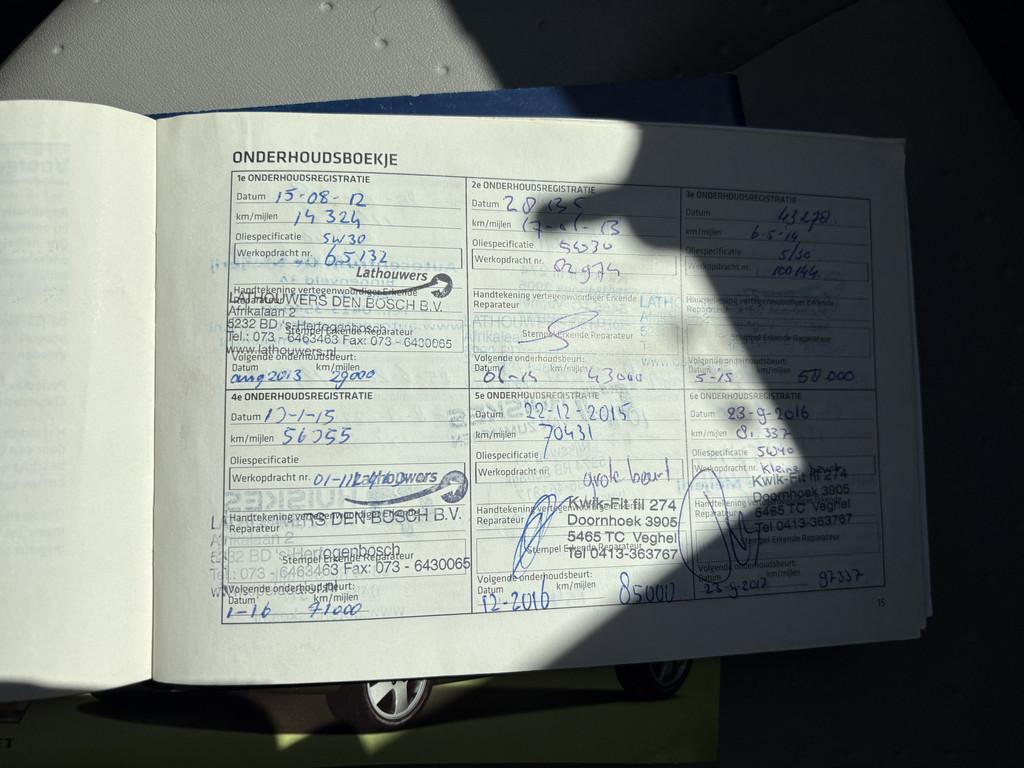 ONDERHOUDSBOEKJE
1e ONDERHOUDSREGISTRATIE
Datum 15-08-12
km/mijlen 14 324
Oliespecificatie 5W30
Werkopdracht nr. 65132
Lathouwers
Handtekening vertegenwoordiger Erkende
Reparateur
LATHOUWERS DEN BOSCH B.V.
Afrikalaan 2
5232 BD 's-Hertogenbosch
Stempel Erkende Reparateur
Tel.: 073 - 6463463 Fax: 073 - 6430065
www.lathouwers.nl
Volgende onderhoudsbeurt:
Datum km/mijlen
aug 2013 29000
2e ONDERHOUDSREGISTRATIE
Datum 28 135
km/mijlen 17-01-13
Oliespecificatie 5W30
Werkopdracht nr. 02974
Handtekening vertegenwoordiger Erkende
Reparateur
Stempel Erkende Reparateur
Volgende onderhoudsbeurt:
Datum km/mijlen
01-14 43000
3e ONDERHOUDSREGISTRATIE
Datum 43278.
km/mijlen 6-5-14
Oliespecificatie 5/30
Werkopdracht nr. 100144
Handtekening vertegenwoordiger Erkende
Reparateur
Stempel Erkende Reparateur
Volgende onderhoudsbeurt:
Datum km/mijlen
5-15 58000
4e ONDERHOUDSREGISTRATIE
Datum 12-1-15
km/mijlen 56355
Oliespecificatie
Werkopdracht nr.
Lathouwers
Handtekening vertegenwoordiger Erkende
Reparateur
LATHOUWERS DEN BOSCH B.V.
Afrikalaan 2
5232 BD 's-Hertogenbosch
Stempel Erkende Reparateur
Tel.: 073 - 6463463 Fax: 073 - 6430065
Volgende onderhoudsbeurt:
Datum km/mijlen
1-16 71000
5e ONDERHOUDSREGISTRATIE
Datum 22-12-2015
km/mijlen 70431
Oliespecificatie
Werkopdracht nr. grote beurt
Handtekening vertegenwoordiger Erkende
Reparateur
Kwik-Fit fil 274
Doornhoek 3905
5465 TC Veghel
Stempel Erkende Reparateur
Tel 0413-363767
Volgende onderhoudsbeurt:
Datum km/mijlen
12-2016 85000
6e ONDERHOUDSREGISTRATIE
Datum 23-9-2016
km/mijlen 8. 337
Oliespecificatie 5W40
Werkopdracht nr. kleine beurt
Kwik-Fit fil 274
Handtekening vertegenwoordiger Erkende
Reparateur
Doornhoek 3905
5465 TC Veghel
Tel 0413-363767
Stempel Erkende Reparateur
Volgende onderhoudsbeurt:
Datum km/mijlen
23-9-2017 97337
15